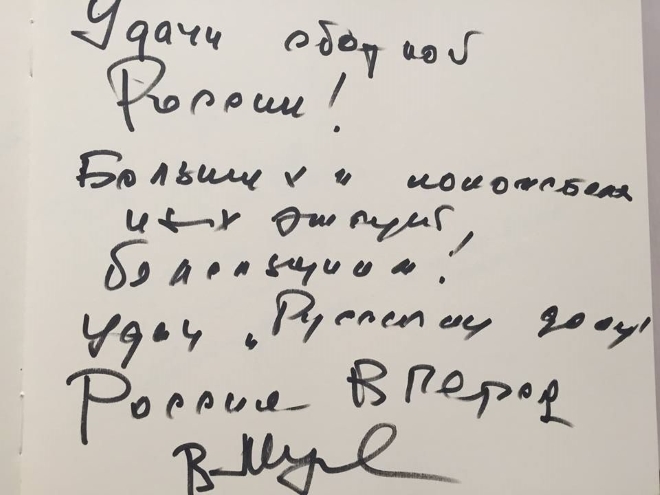 Удачи сборной
России!
Больших и положитель
ных эмоций,
болельщики!
Удачи „Русскому дому“
Россия Вперед